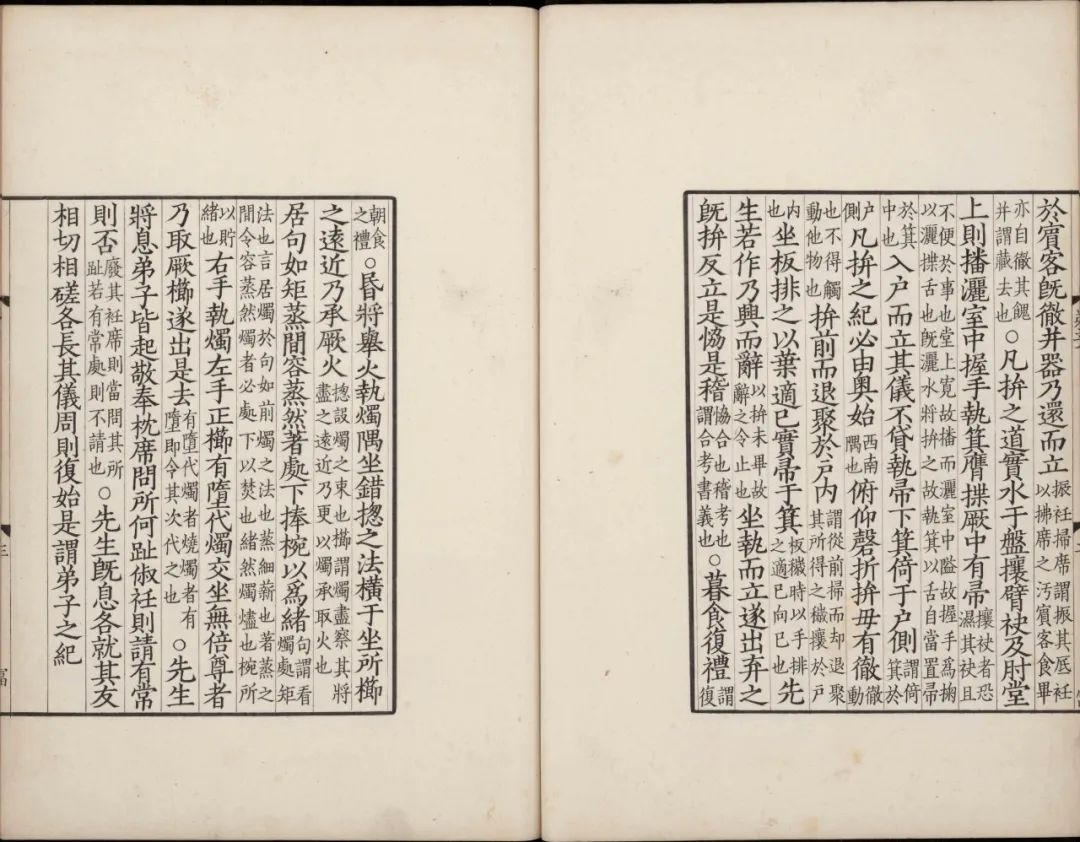 於賓客既徹并器乃還而立振衽掃席謂振其底衽以拂席之汚賓客食畢
亦自徹其餽并謂藏去也○凡拚之道實水于盤攘臂袂及肘堂
上則播灑室中握手執箕膺揲厥中有帚攘袂者恐濕其袂且
不便於事也堂上寛故播而灑室中隘故握手爲掬以灑揲舌也既灑水將拚之故執箕以舌自當置帚
於箕中也入户而立其儀不貸執帚下箕倚于户側謂倚箕於
户側也凡拚之紀必由奥始西南隅也俯仰磬折拚毋有徹徹動
也不得觸動他物也拚前而退聚於户内謂從前掃而却退聚其所得之穢攘於户
内也坐板排之以葉適己實帚于箕板穢時以手排之適己向己也先
生若作乃興而辭以拚未畢故辭之令止也坐執而立遂出弃之
既拚反立是恊是稽恊合也稽考也謂合考書義也○暮食復禮謂復
朝食之禮○昬將舉火執燭隅坐錯摠之法橫于坐所櫛
之遠近乃承厥火摠設燭之束也櫛謂燭盡察其將盡之遠近乃更以燭承取火也
居句如矩蒸間容蒸然著處下捧椀以爲緒句謂看燭處矩
法也言居燭於句如前燭之法也蒸細薪也著蒸之間令容蒸然燭者必處下以焚也緒然燭燼也椀所
以貯緒也右手執燭左手正櫛有墮代燭交坐無倍尊者
乃取厥櫛遂出是去有墮代燭者燒燭者有墮即令其次代之也○先生
將息弟子皆起敬奉枕席問所何趾俶衽則請有常
則否廢其衽席則當問其所趾若有常處則不請也○先生既息各就其友
相切相磋各長其儀周則復始是謂弟子之紀
三